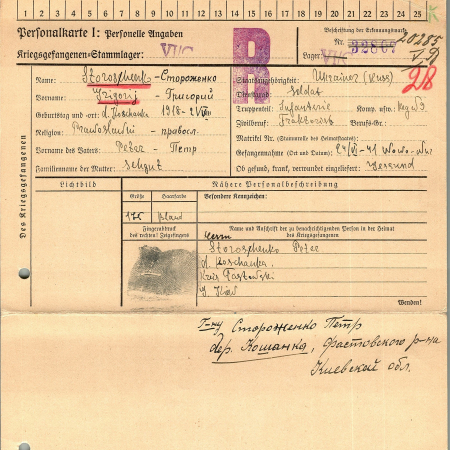 1 2 3 4 5 6 7 8 9 10 11 12 13 14 15 16 17 18 19 20 21 22 23 24 25
Personalkarte I: Personelle Angaben
Kriegsgefangenen-Stammlager: VIIC
Beschriftung der Erkennungsmarke
Nr. 32807 20285
Lager: VIIC V D
28
Des Kriegsgefangenen
Name: Storoschenko - Стороженко
Vorname: Grigorij - Григорий
Geburtstag und -ort: d. Koschanka 1918
Religion: - правосл.
Vorname des Vaters: Peter - Петр
Familienname der Mutter:
Staatsangehörigkeit: Ukrainer (Russ)
Dienstgrad: Soldat
Truppenteil: Infanterie Komp. usw.:
Zivilberuf: Berufs-Gr.:
Matrikel Nr. (Stammrolle des Heimatstaates):
Gefangennahme (Ort und Datum):
Ob gesund, krank, verwundet eingeliefert: Gesund
Lichtbild
Nähere Personalbeschreibung
Größe Haarfarbe Besondere Kennzeichen:
175 blond
Fingerabdruck
des rechten! Zeigefingers
Name und Anschrift der zu benachrichtigenden Person in der Heimat
des Kriegsgefangenen
Herrn
Storoschenko Peter
d. Koschanka.
Kreis Fastowski
g. Kiew
Wenden!
Г-ну Стороженко Петр
дер. Кошанка, Фастовского р-на
Киевской обл.